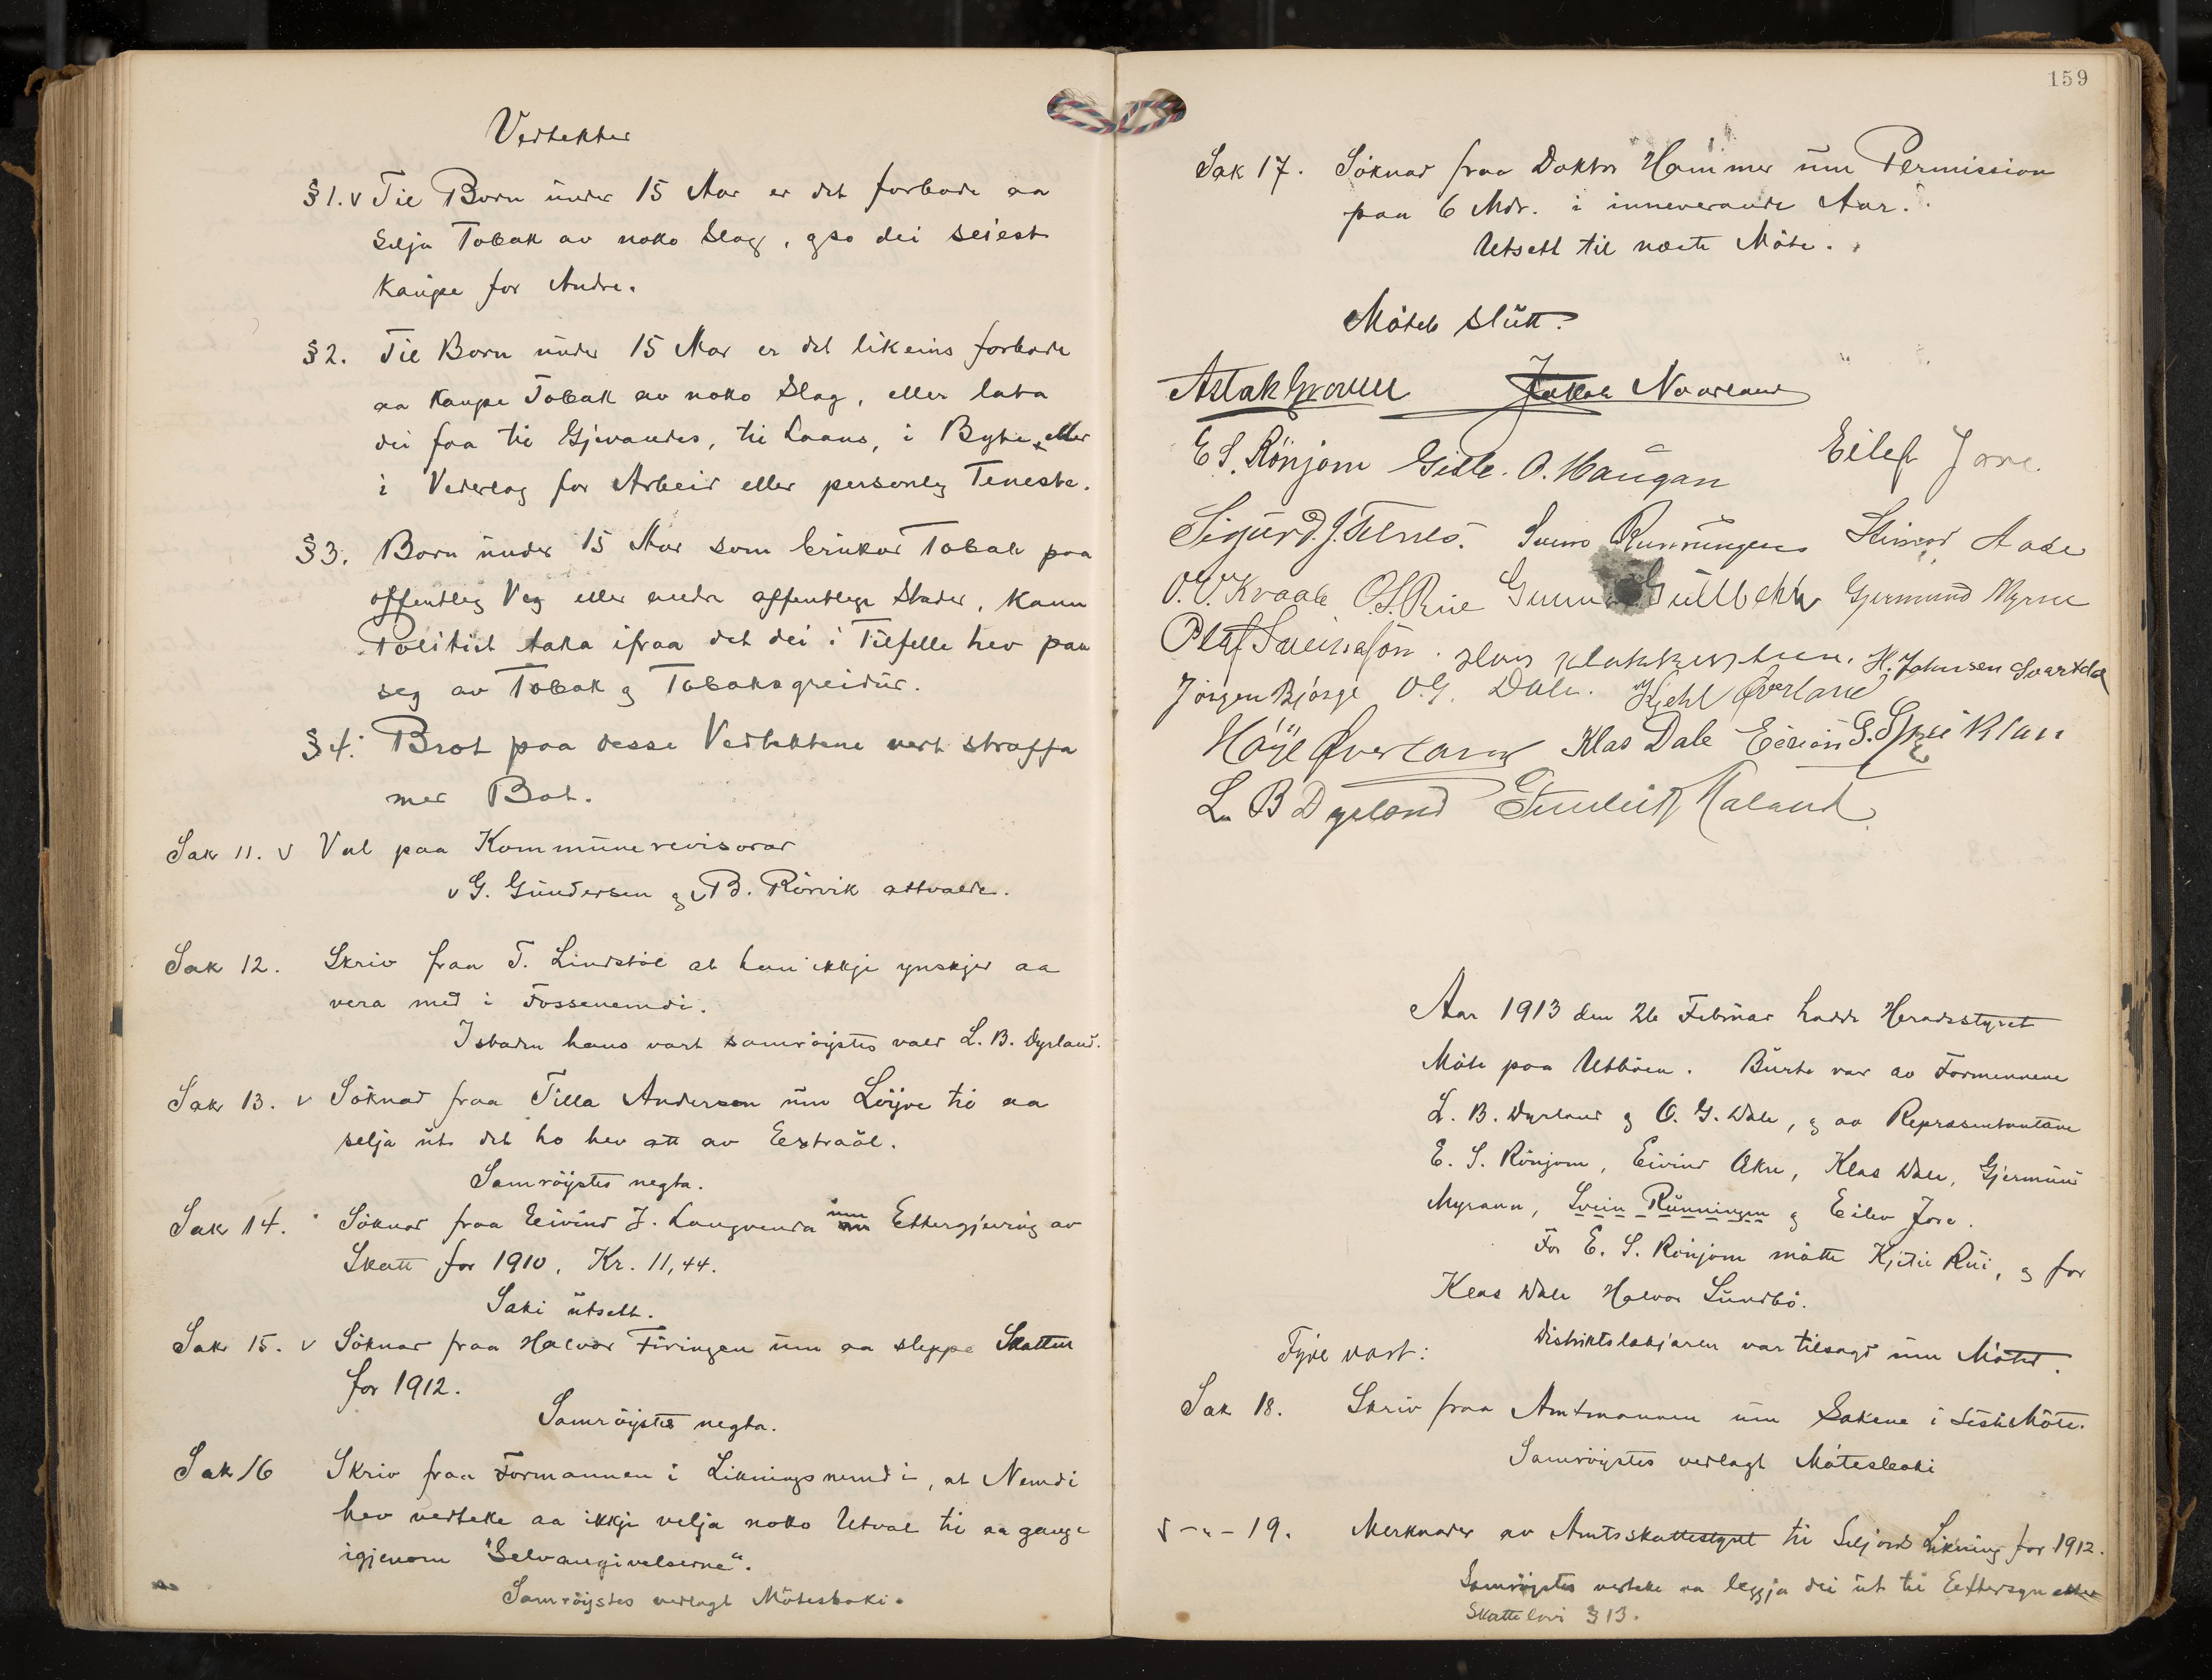 Vedtekter
§1. v Til Born under 15 Aar er det forbode aa
selja Tobak av noko Slag, gso dei seiest
kaupe for Andre.
§2. Til Born under 15 Aar er det likeins forbode
aa kaupe Tobak av noko Slag, eller lata
dei faa til Gjevandes, til Laans, i Byte, eller
i Vederlag for Arbeid eller personleg Teneste.
§3. Born under 15 Aar som brukar Tobak paa
offentleg Veg eller andre offentlege Stader, kann
Politiet taka ifraa det dei i Tilfelle hev paa
seg av Tobak og Tobaksgreidur.
§4. Brot paa desse Vedtektene vert straffa
med Bot.
Sak 11. v Val paa Kommunerevisorar
v G. Gundersen og v B. Rörvik attvalde.
Sak 12. Skriv fraa T. Lindstöl at han ikkje ynskjer aa
vera med i Fossenemdi.
Istaden hans vart samröystes vald L. B. Dyrland.
Sak 13. v Söknad fraa Tilla Andersen um Löyve til aa
selja ut det ho hev att av Extraöl.
Samröystes negta.
Sak 14. Söknad fraa Eivind J. Langvenda um Ettergjeving av
Skatt for 1910, Kr. 11,44.
Saki utsett.
Sak 15. v Söknad fraa Halvor Firingen um aa sleppe Skatten
for 1912.
Samröystes negta.
Sak 16 Skriv fraa Formannen i Likningsnemdi, at Nemdi
hev vedteke aa ikkje velja noko Utval til aa gange
igjenom "Selvangivelserne".
Samröystes vedlagt Mötesboki.
159
Sak 17. Söknad fraa Doktor Hammer um Permission
paa 6 Mdr. i inneverande Aar.
Utsett til næste Möte.
Mötet slutt.
Aslak Groven Jakob Naarland
E S. Rönjom Gisle. O. Haugan Eilef Jore.
Sigurd J. Svein Runningen Steinar Aase
O. O. Kraak O. S. Rue Gunnar Gullbekk Gjermund Myren
Olaf Sveinsson. H. Johnsen Svartdal
Jörgen Bjórge O. G. Dale. Kjetil Øverland
Höye Øverland Klas Dale G.
L. B Dyrland Maland
Aar 1913 den 26 Februar hadde Heradsstyret
Möte paa Utböen. Burte var av Formennene
L. B. Dyrland og O. G. Dale, og av Repræsentantane
E. S. Rönjom, Eivind Økre, Klas Dale, Gjermund
Myrann, Svein Runningen og Eilev Jore.
For E. S. Rönjom mötte Kjetil Rui, og for
Klas Dale Halvor Sundbö.
Distriktslækjaren var tilsagd um Mötet.
Fyre vart:
Sak 18. Skriv fraa Amtmannen um Sakene i siste Möte.
Samröystes vedlagt Mötesboki
v - " - 19. Merknader av Amtsskattestyret til Seljord Likning for 1912.
Samröystes vedteke aa leggja dei ut til Ettersyn etter
Skattelovi §13.